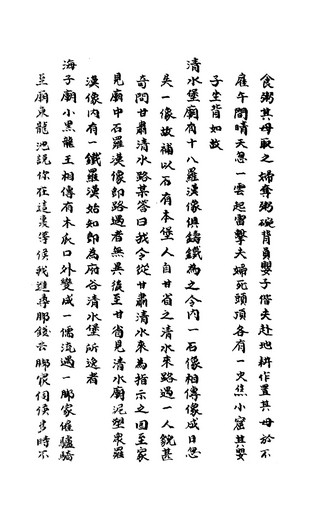 食粥其母取之婦奪粥碗背負嬰子偕夫赴地耕作置其母於不
雇午間晴天忽一雲起雷擊夫婦死頭頂各有一火焦小窟其嬰
子坐背如故
清水堡廟有十八羅漢像俱鑄鐵為之今內一石像相傳像成日忽
失一像故補以石有本堡人自甘省之清水來路遇一人貌甚
奇問甘肅清水路某答曰我今從甘肅清水來為指示之回至家
見廟中石羅漢像即路遇者無異後至甘省見清水廟泥塑眾羅
漢像內有一鐵羅漢始知即為府谷清水堡所逸者
海子廟小黑龍王相傳有木瓜口外變成一儒流遇一腳家催驢騎
至廟東龍池說你在這裏等候我進尋腳錢去腳家伺候多時不